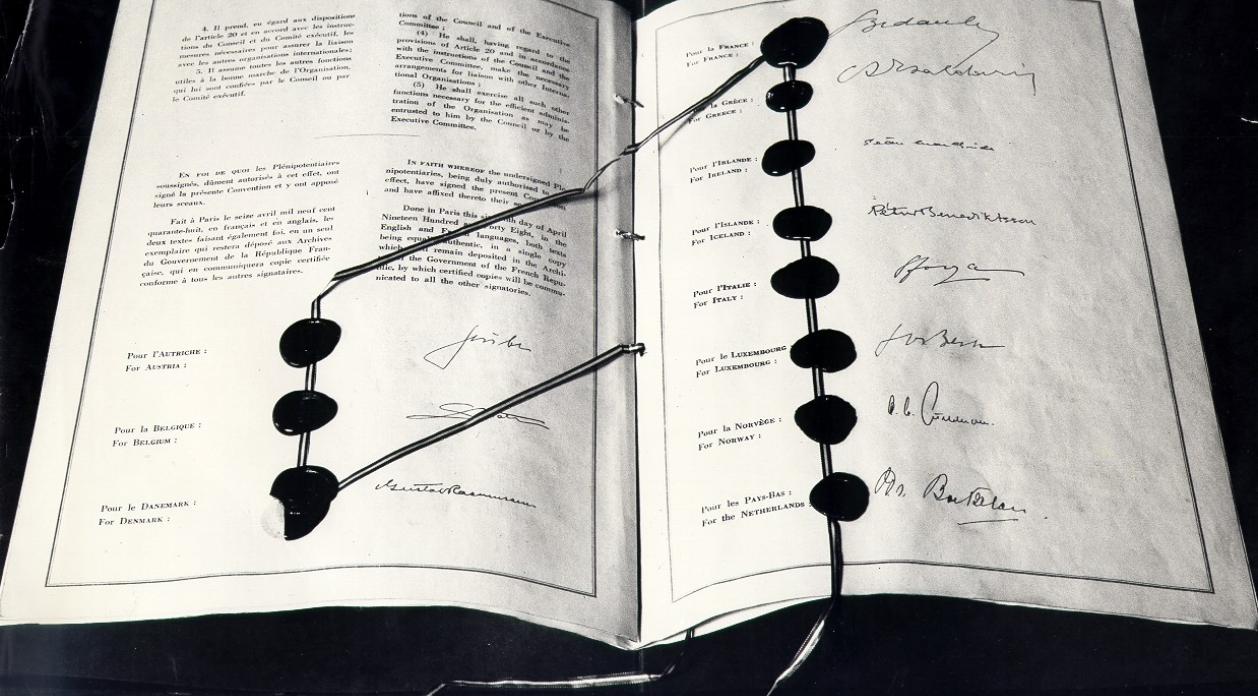 4. Il prend, eu égard aux dispositions
de l'article 20 et en accord avec les instruc-
tions du Conseil et du Comité exécutif, les
mesures nécessaires pour assurer la liaison
avec les autres organisations internationales;
5. Il assume toutes les autres fonctions
utiles à la bonne marche de l'Organisation,
qui lui sont confiées par le Conseil ou par
le Comité exécutif.
EN FOI DE QUOI les Plénipotentiaires
soussignés, dûment autorisés à cet effet, ont
signé la présente Convention et y ont apposé
leurs sceaux.
Fait à Paris le seize avril mil neuf cent
quarante-huit, en français et en anglais, les
deux textes faisant également foi, en un seul
exemplaire qui restera déposé aux Archives
du Gouvernement de la République Fran-
çaise, qui en communiquera copie certifiée
conforme à tous les autres signataires.
tions of the Council and of the Executive
Committee;
(4) He shall, having regard to the
provisions of Article 20 and in accordance
with the instructions of the Council and the
Executive Committee, make the necessary
arrangements for liaison with other Interna-
tional Organisations;
(5) He shall exercise all such other
functions necessary for the efficient adminis-
tration of the Organisation as may be
entrusted to him by the Council or by the
Executive Committee.
IN FAITH WHEREOF the undersigned Ple-
nipotentiaries, being duly authorised to
effect, have signed the present
and have affixed thereto their
Done in Paris this day of April
Nineteen Hundred Forty Eight, in the
English and French languages, both texts
being equally authentic, in a single copy
which remain deposited in the Archi-
the Government of the French Repu-
blic, by which certified copies will be commu-
nicated to all the other signatories.
Pour l'AUTRICHE :
For AUSTRIA :
Gruber
Pour la BELGIQUE :
For BELGIUM :
Pour le DANEMARK :
For DENMARK :
Gustav Rasmussen
Pour la FRANCE :
For FRANCE :
Bidault
la GRÈCE :
For GREECE :
Pour l'IRLANDE :
For IRELAND :
Seán MacBride
Pour l'ISLANDE :
For ICELAND :
Pétur Benediktsson
Pour l'ITALIE :
For ITALY :
Sforza
Pour le LUXEMBOURG :
For LUXEMBOURG :
Jos Bech
Pour la NORVÈGE :
For NORWAY :
Pour les PAYS-BAS :
For the NETHERLANDS :